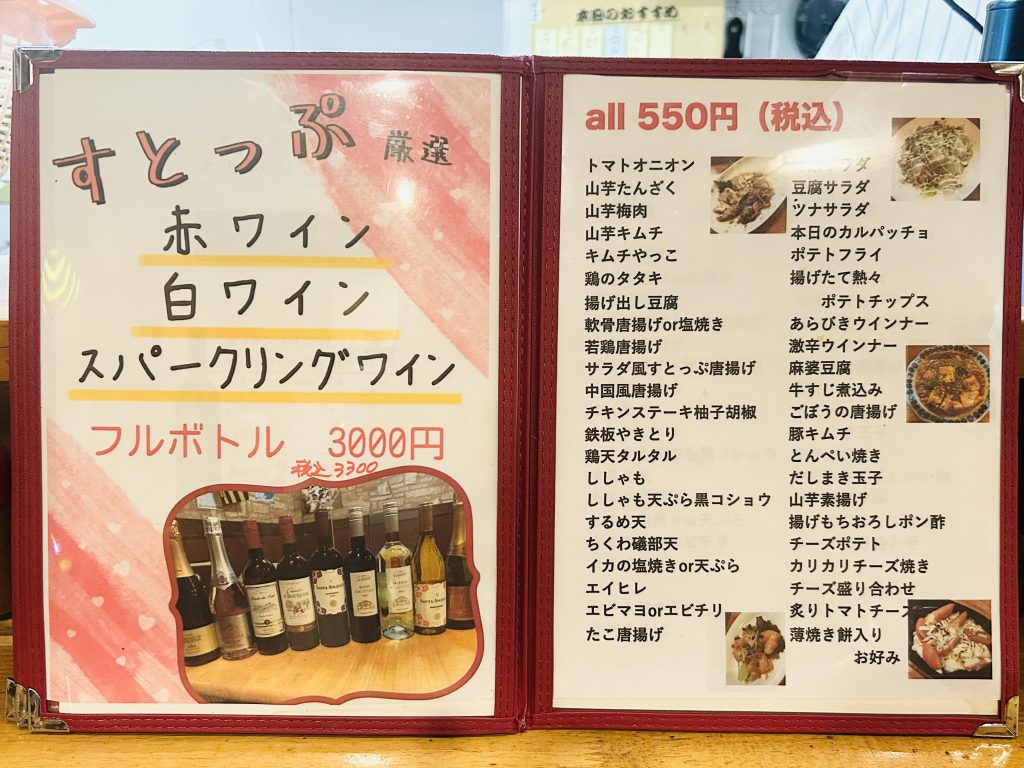 本日のおすすめ
すとっぷ 厳選
赤ワイン
白ワイン
スパークリングワイン
フルボトル 3000円
税込3300
all 550円（税込）
トマトオニオン
山芋たんざく
山芋梅肉
山芋キムチ
キムチやっこ
鶏のタタキ
揚げ出し豆腐
軟骨唐揚げor塩焼き
若鶏唐揚げ
サラダ風すとっぷ唐揚げ
中国風唐揚げ
チキンステーキ柚子胡椒
鉄板やきとり
鶏天タルタル
ししゃも
ししゃも天ぷら黒コショウ
するめ天
ちくわ磯部天
イカの塩焼きor天ぷら
エイヒレ
エビマヨorエビチリ
たこ唐揚げ
サラダ
豆腐サラダ
ツナサラダ
本日のカルパッチョ
ポテトフライ
揚げたて熱々
ポテトチップス
あらびきウインナー
激辛ウインナー
麻婆豆腐
牛すじ煮込み
ごぼうの唐揚げ
豚キムチ
とんぺい焼き
だしまき玉子
山芋素揚げ
揚げもちおろしポン酢
チーズポテト
カリカリチーズ焼き
チーズ盛り合わせ
炙りトマトチーズ
薄焼き餅入り
お好み
SANTA ANGELA